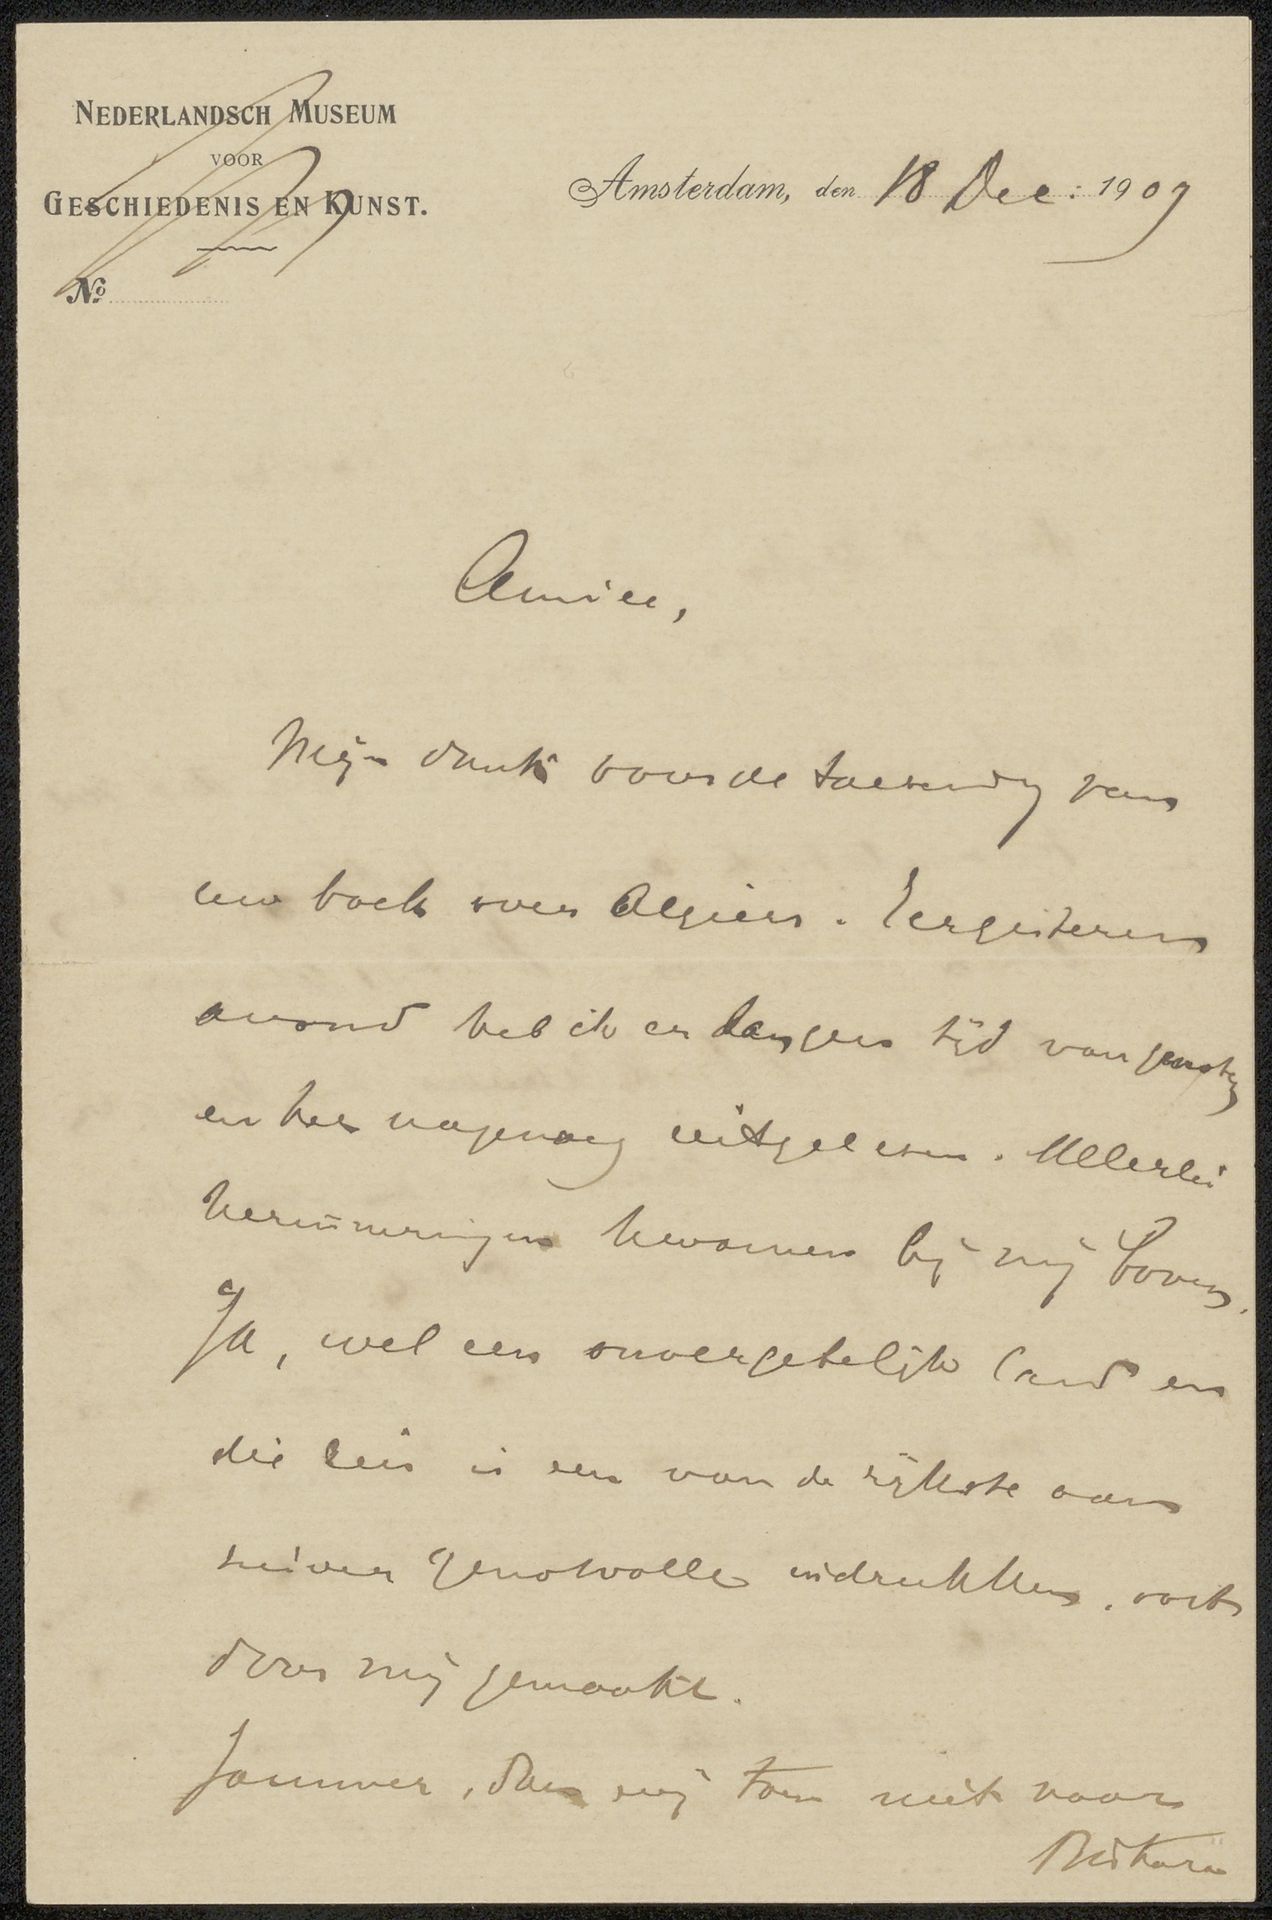 NEDERLANDSCH MUSEUM
VOOR
GESCHIEDENIS EN KUNST.
No.
Amsterdam, den 18 Dec: 1909
Amice,
Mijn dank voor de toezending van
uw boek over Algiers. Eergisteren
avond heb ik er langen tijd van genoten
en het nagenoeg uitgelezen. Allerlei
herinneringen kwamen bij mij boven.
Ja, wel een onvergetelijk land en
die reis is een van de rijkste aan
zuiver genotvolle indrukken, ooit
door mij gemaakt.
Jammer, dat wij toen niet naar
Biskara